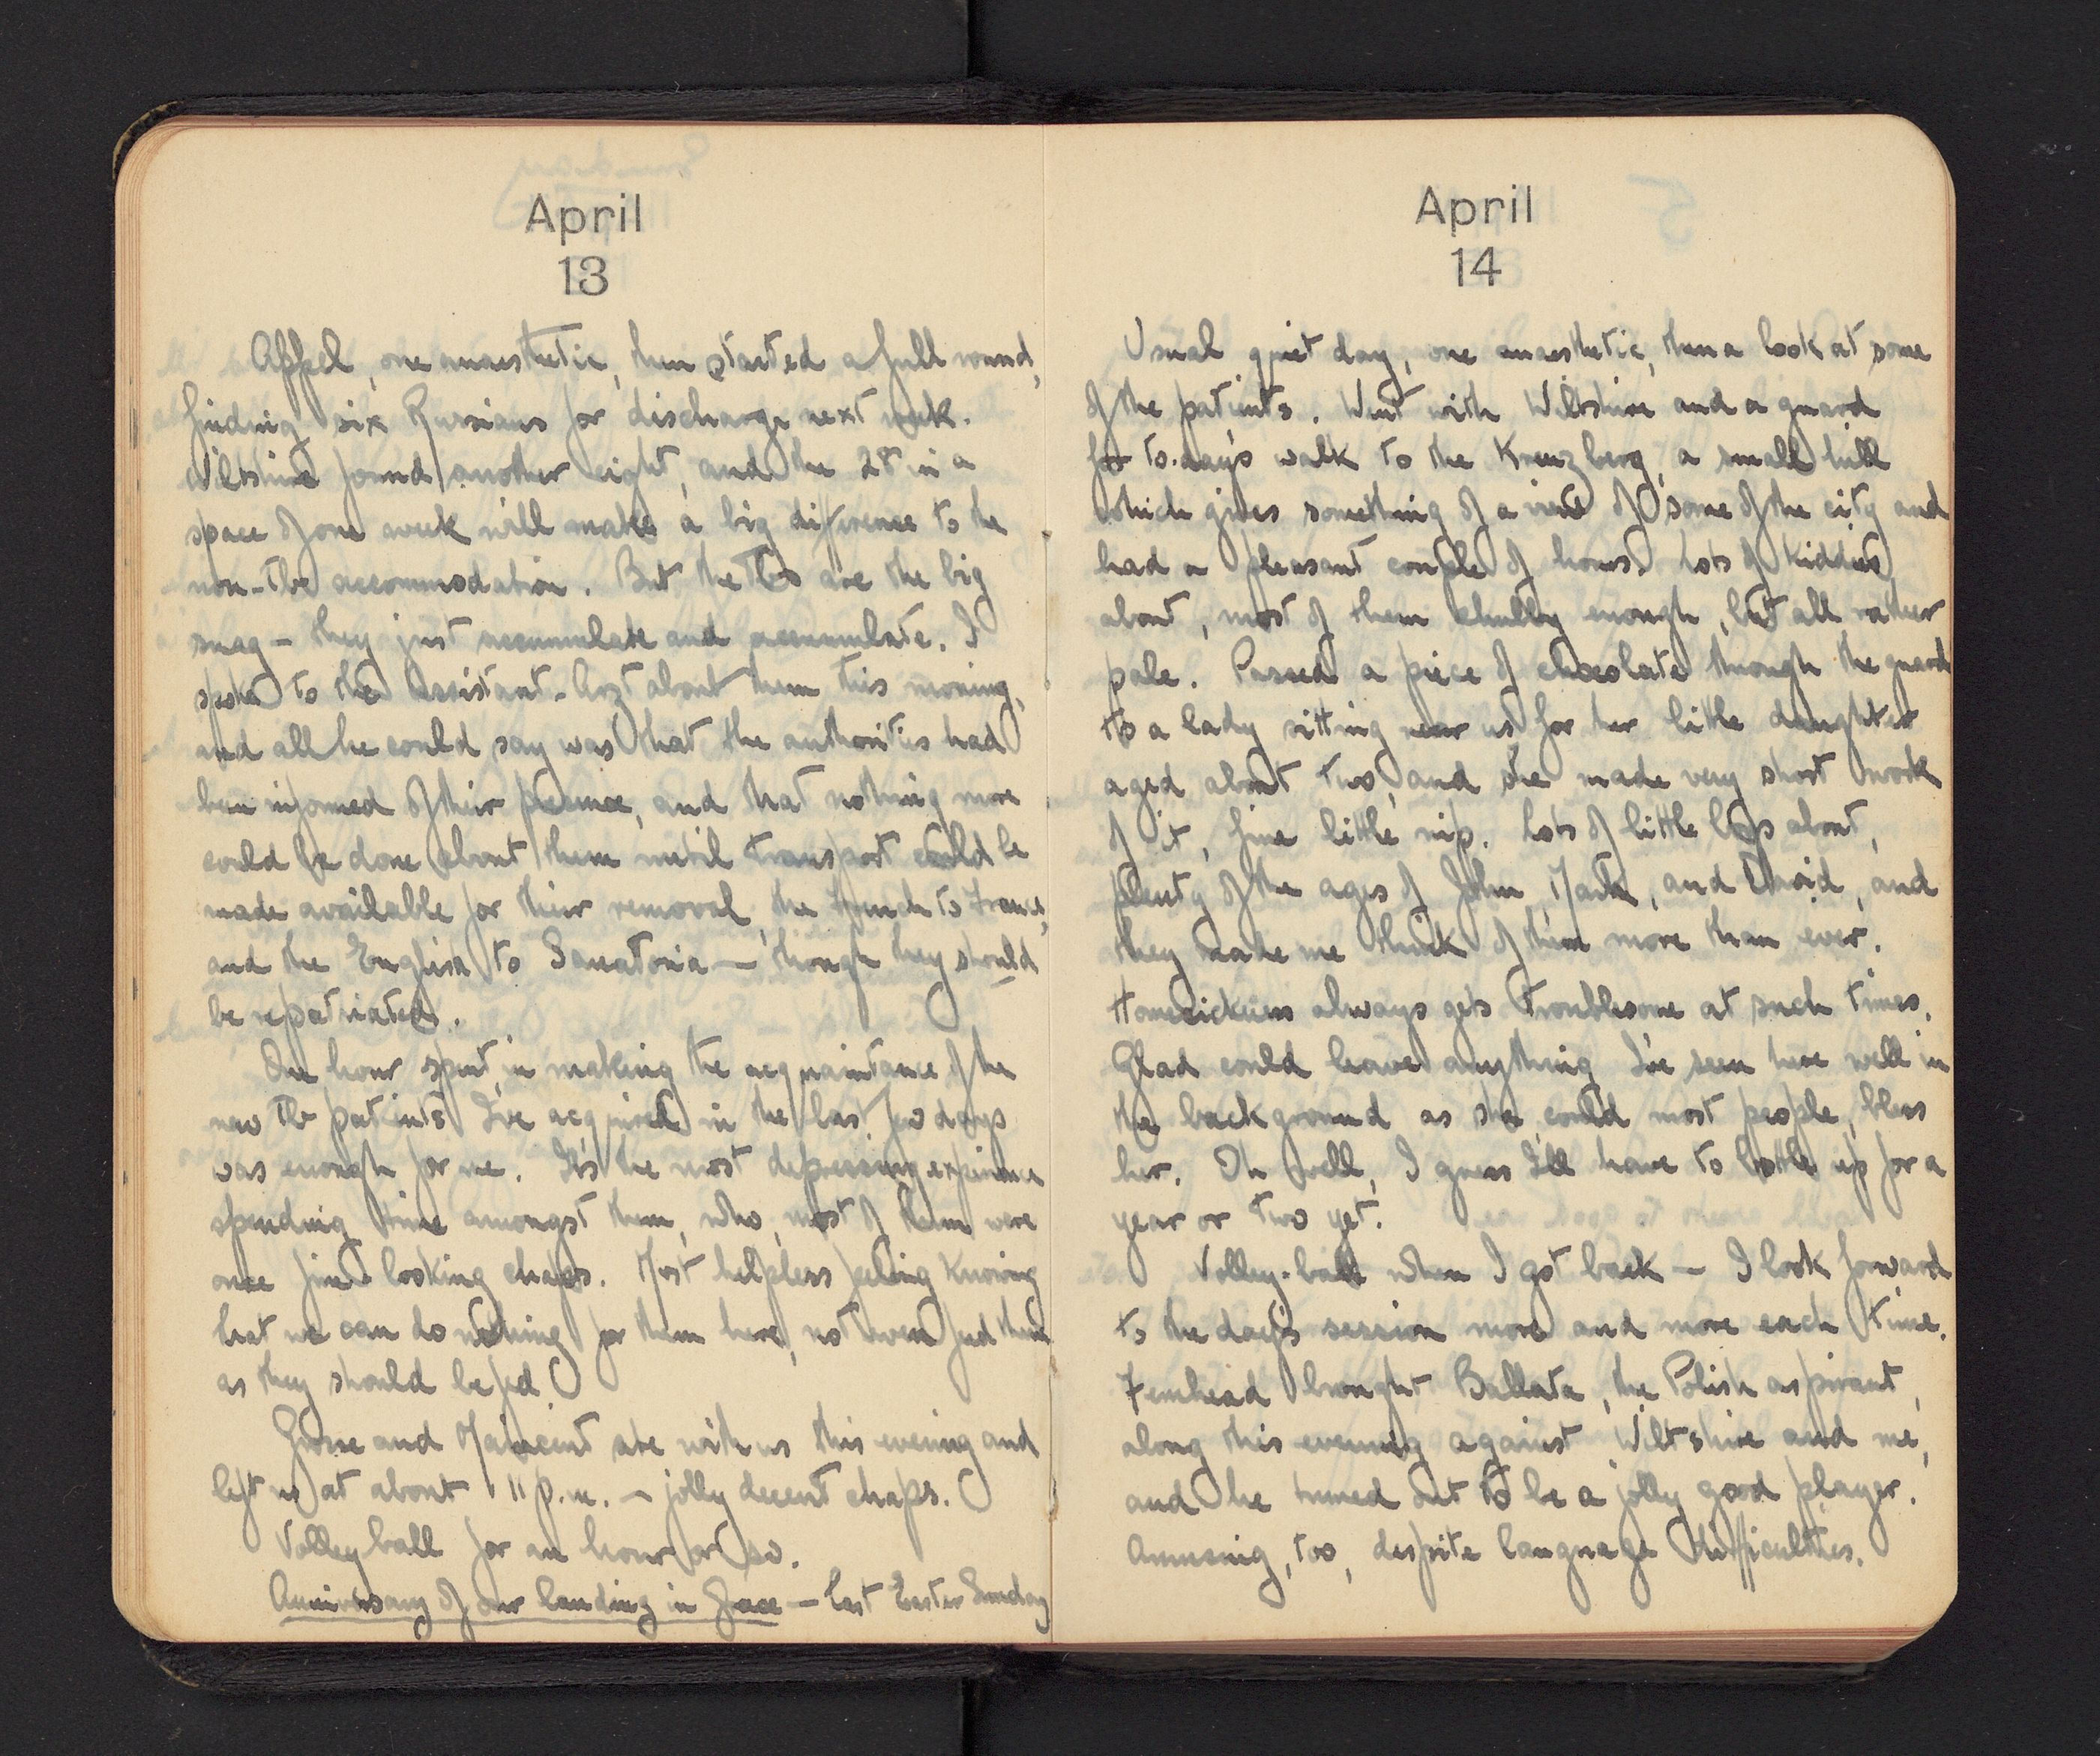 April
13
Appel, one anaesthetic, then started a full round,
finding six Russians for discharge next week.
Wiltshire found another eight, and the 28 in a
space of one week will make a big difference to the
non-Tbc accommodation. But the Tbs are the big
snag – they just accumulate and accumulate. I
spoke to the Assistant-Arzt about them this morning,
and all he could say was that the authorities had
been informed of their presence, and that nothing more
could be done about them until transport could be
made available for their removal, the French to France,
and the English to Sanatoria – though they should
be repatriated.
One hour spent in making the acquaintance of the
new Tb patients I've acquired in the last few days
was enough for me. It's the most depressing experience
spending time amongst them, who, most of them were
once fine looking chaps. Most helpless feeling knowing
that we can do nothing for them here, not even feed them
as they should be fed.
and ate with us this evening and
left us at about 11 p.m. – jolly decent chaps.
Volley ball for an hour or so.
Anniversary of our landing in Greece – last Easter Sunday
April
14
Usual quiet day, one anaesthetic, then a look at some
of the patients. Went with Wiltshire and a guard
for to-day's walk to the Kreuzberg, a small hill
which gives something of a view of some of the city and
had a pleasant couple of hours. Lots of kiddies
about, most of them chubby enough, but all rather
pale. Passed a piece of chocolate through the guard
to a lady sitting near us for her little daughter
aged about two, and she made very short work
of it, fine little nip. Lots of little boys about,
plenty of the ages of John, Mark, and David, and
they make me think of them more than ever.
Homesickness always gets troublesome at such times.
Glad could leave anything I've seen here well in
the background as she could most people, bless
her. Oh well, I guess I'll have to bottle up for a
year or two yet.
Volley-ball when I got back – I look forward
to the day's session more and more each time.
Femhead brought Ballata, the Polish aspirant,
along this evening against Wiltshire and me,
and he turned out to be a jolly good player.
Amusing, too, despite language difficulties.